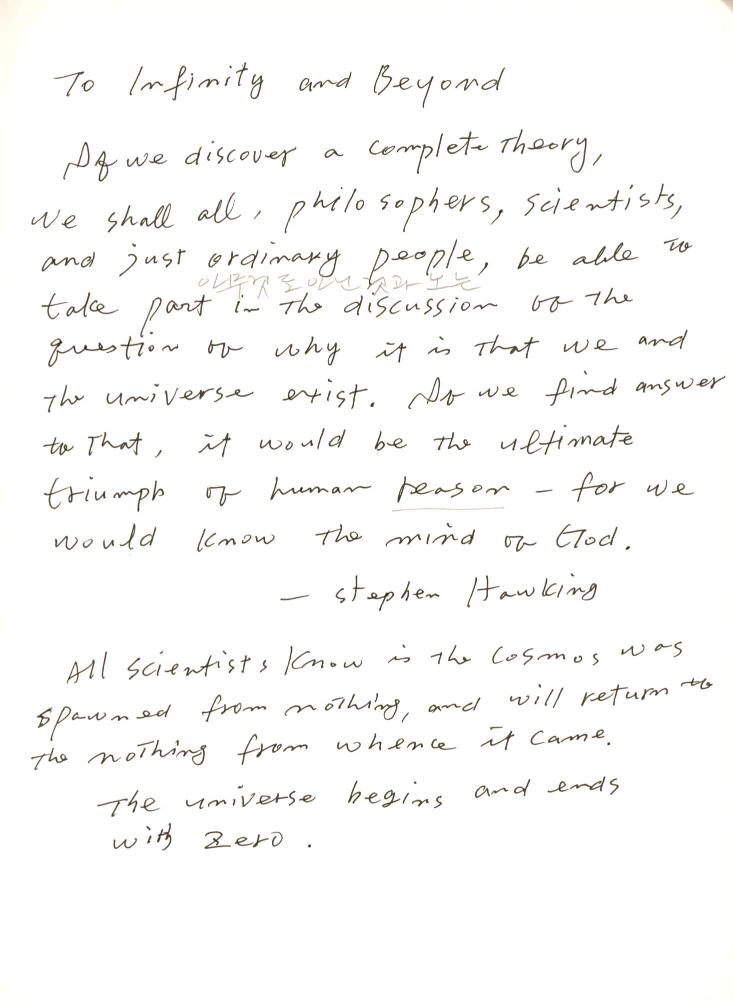 To Infinity and Beyond
If we discover a complete theory,
we shall all, philosophers, scientists,
and just ordinary people, be able to
아무것도 아닌 것과 노는
take part in the discussion of the
question of why it is that we and
the universe exist. If we find answer
to that, it would be the ultimate
triumph of human reason – for we
would know the mind of God.
— Stephen Hawking
All scientists know is the cosmos was
spawned from nothing, and will return to
the nothing from whence it came.
The universe begins and ends
with zero.